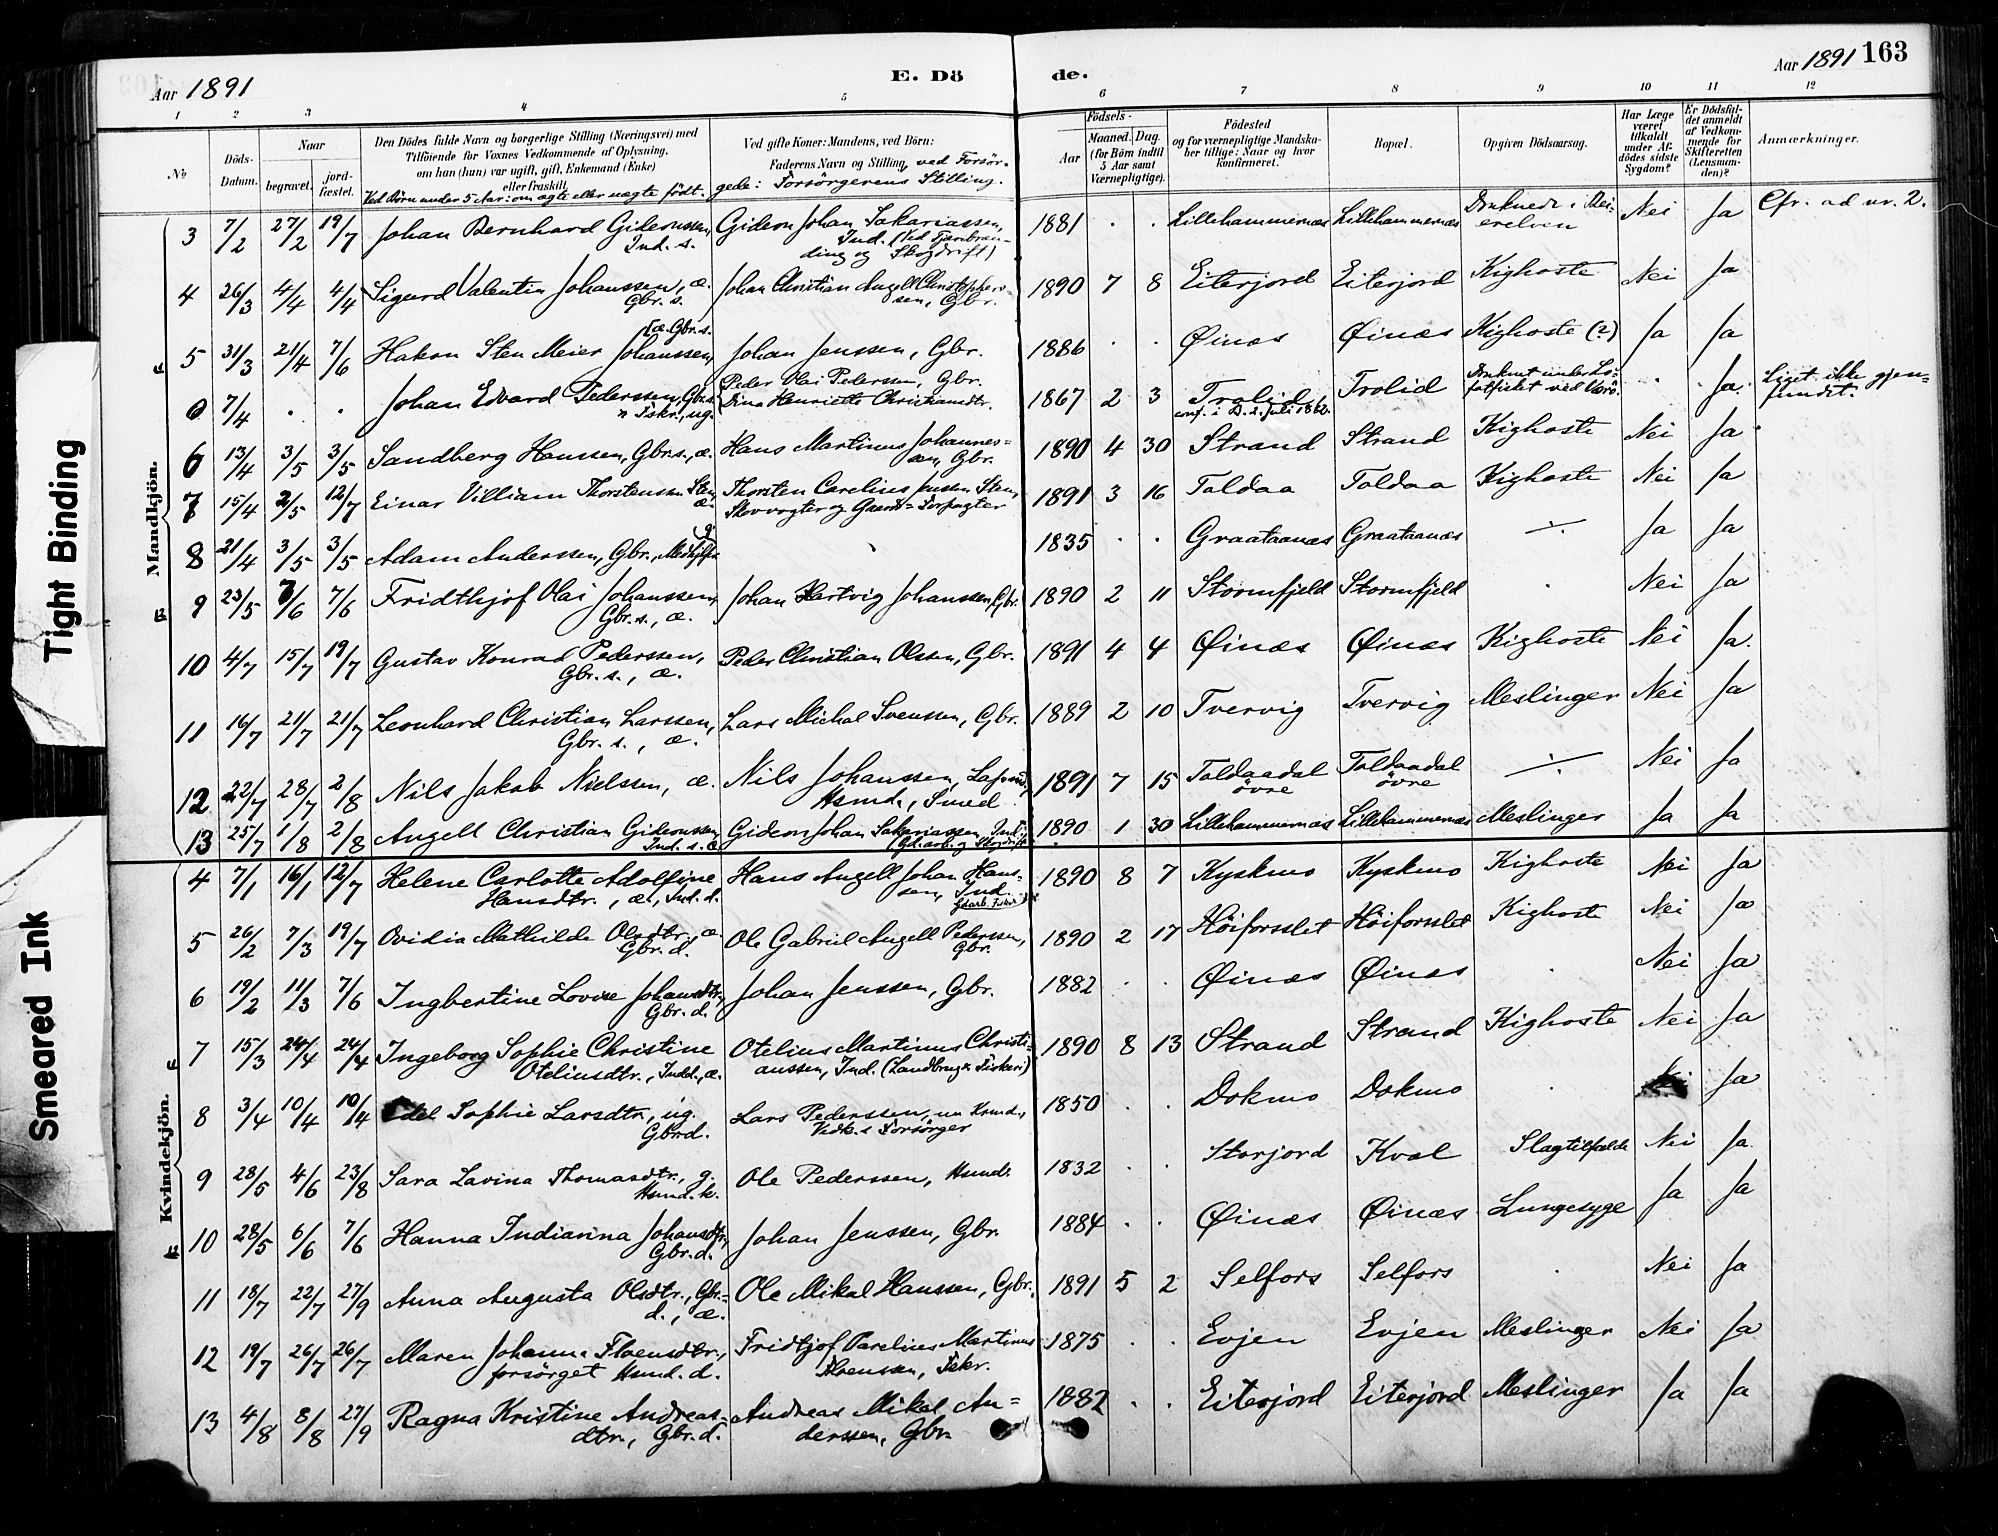 Aar 1891
E. Dö
de.
Aar 1891 163
1 2 3 4 5 6 7 8 9 10 11 12
No
Döds-Datum.
Naar
begravet.
jord-fæstet.
Den Dödes fulde Navn og borgerlige Stilling (Næringsvei) med
Tilföiende for Voxnes Vedkommende af Oplysning,
om han (hun) var ugift, gift, Enkemand (Enke)
eller fraskilt.
Ved Börn under 5 Aar: om ægte eller uægte født.
Ved gifte Koner: Mandens, ved Börn:
Faderens Navn og Stilling, ved Forsör-
gede: Forsörgerens Stilling.
Födsels-
Aar
Maaned. Dag.
(for Börn indtil
5 Aar samt
Værnepligtige).
Födested
og for værnepligtige Mandska-
ber tillige: Naar og hvor
konfirmeret.
Bopæl.
Opgiven Dödsaarsag.
Har Læge
været
tilkaldt
under Af-
dödes sidste
Sygdom?
Er Dödsfal-
det anmeldt
af Vedkom-
mende for
Skifteretten
(Lensman-
den)?
Anmærkninger.
Mandkjön.
3 7/2 27/2 19/7 Johan Bernhard Gideonssen, Ind. s. Gideon Johan Sakariassen, Ind. (Ved Tjærebræn-
ding og Skogdrift) 1881 . . Lillehammernæs Lillehammernæs Druknede i Bei-
erelven Nei Ja Cfr. ad nr. 2.
4 26/3 4/4 4/4 Sigurd Valentin Johanssen, æ. Gbr. s. Johan Christian Angell Christophers-
sen, Gbr. 1890 7 8 Eiterjord Eiterjord Kighoste Nei Ja
5 31/3 21/4 7/6 Hakon Sten Meier Johanssen, [æ. Gbr. s. Johan Jenssen, Gbr. 1886 . . Öinæs Öinæs Kighoste (?) Ja Ja
0 7/4 . . Johan Edvard Pederssen, Gbr. s.
Fskr., ug. Peder Olai Pederssen, Gbr.
Dina Henriette Christiansdtr. 1867 2 3 Trolid Trolid Druknet under Lo-
fotfisket ved Værö . Ja. Liget ikke gjen-
fundet.
6 13/4 3/5 3/5 Sandberg Hanssen, Gbr. s., æ. Hans Martinus Johannes-
sen, Gbr. 1890 4 30 Strand Strand Kighoste Nei Ja
7 15/4 2/5 12/7 Einar Villiam Thorstenssen Sten, æ. Thorsten Carelius Jenssen Sten,
Skovvogter og Gaard-Forpagter 1891 3 16 Toldaa Toldaa Kighoste Nei Ja
8 21/4 3/5 3/5 Adam Anderssen, Gbr., g. 1835 . . Graataanæs Graataanæs ÷ Ja Ja
9 23/5 7/6 7/6 Fridthjof Olai Johanssen, Gbr. s., æ. Johan Hartvig Johanssen, Gbr. 1890 2 11 Stormfjeld Stormfjeld . Nei Ja
10 4/7 15/7 19/7 Gustav Konrad Pederssen, Gbr. s., æ. Peder Christian Olsen, Gbr. 1891 4 4 Öinæs Öinæs Kighoste Nei Ja.
11 16/7 21/7 21/7 Leonhard Christian Larssen, Gbr. s., æ. Lars Michal Svenssen, Gbr. 1889 2 10 Tvervig Tvervig Meslinger Nei Ja
12 22/7 28/7 2/8 Nils Jakob Nielssen, æ. Nils Johanssen, Hsmd., Smed 1891 7 15 Toldaadal övre Toldaadal övre ÷ Nei Ja
13 25/7 1/8 2/8 Angell Christian Gideonssen, Ind. s. æ Gideon Johan Sakariassen, Ind. 1890 1 30 Lillehammernæs Lillehammernæs Meslinger Ja Ja
Kvindekjön.
4 7/1 16/1 12/7 Helene Carlotte Adolfine
Hansdtr., æ., Ind. d. Hans Angell Johan Hans-
sen, Ind. 1890 8 7 Kyskmo Kyskmo Kighoste Nei Ja
5 26/2 7/3 19/7 Ovidia Mathilde Olsdtr., æ. Gbr. d. Ole Gabriel Angell Pederssen, Gbr. 1890 2 17 Höiforsslet Höiforsslet Kighoste Nei Ja
6 19/2 11/3 7/6 Ingbertine Lovise Johansdtr., Gbr. d. Johan Jenssen, Gbr. 1882 . . Öinæs Öinæs . Nei Ja
7 15/3 24/4 24/4 Ingeborg Sophie Christine
Oteliusdtr., Indd., æ. Otelius Martinus Christi-
anssen, Ind. (Landbrug & Fiskeri) 1890 8 13 Strand Strand Kighoste Nei Ja
8 3/4 10/4 10/4 Edel Sophie Larsdtr., ug. Gbrd. Lars Pederssen,
Vedk.s Forsörger 1850 . . Dokmo Dokmo . Nei Ja
9 28/5 4/6 23/8 Sara Lavina Thomasdtr., g. Hsmd. k. Ole Pederssen, Hsmd. 1832 . . Storjord Kvæl Slagtilfælde Nei Ja.
10 28/5 6/6 7/6 Hanna Indianna Johansdtr., Gbr. d. Johan Jenssen, Gbr. 1884 . . Öinæs Öinæs Lungesyge Ja Ja
11 18/7 22/7 27/9 Anna Augusta Olsdtr., Gbr.-
d., æ. Ole Mikal Hanssen, Gbr. 1891 5 2 Selfors Selfors . Nei Ja
12 19/7 26/7 26/7 Maren Johanna Floensdtr.,
forsörget Hsmd. d. Fridtjof Parelius Martinus
Floenssen, Fskr. 1875 . . Evjen Evjen Meslinger Nei Ja
13 4/8 8/8 27/9 Ragna Kristine Andreas-
dtr., Gbr. d. Andreas Mikal An-
derssen, Gbr. 1882 . . Eiterjord Eiterjord Meslinger Ja Ja
Tight Binding
Smeared Ink